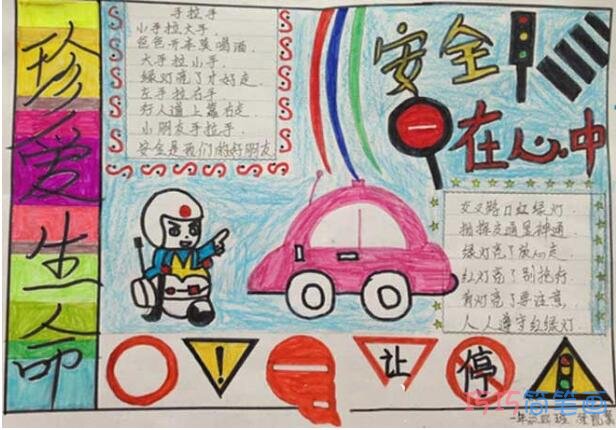 珍爱生命
手拉手
小手拉大手.
爸爸开车莫喝酒.
大手拉小手.
绿灯亮了才好走.
左手拉右手
行人道上靠右走.
小朋友手拉手.
安全是我们的好朋友
安全
在心中
交叉路口红绿灯
指挥交通显神通
绿灯亮了放心走
红灯亮了别抢行
黄灯亮了要注意
人人遵守红绿灯
让
停
巧巧简笔画